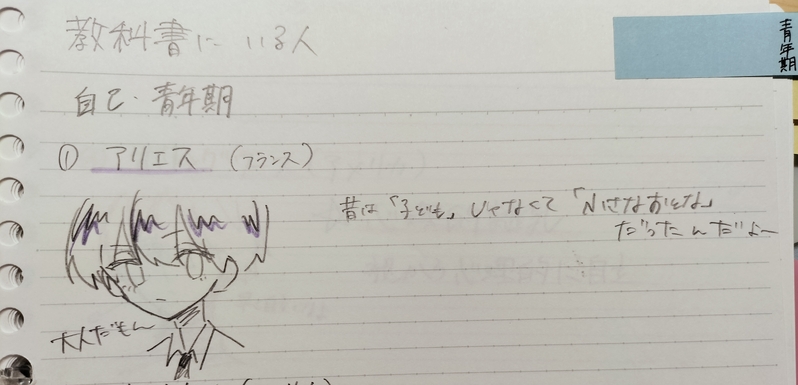 教科書にいる人
青年期
自己・青年期
① アリエス (フランス)
昔は「子ども」じゃなくて「小さなおとな」
だったんだよ〜
大人だもん